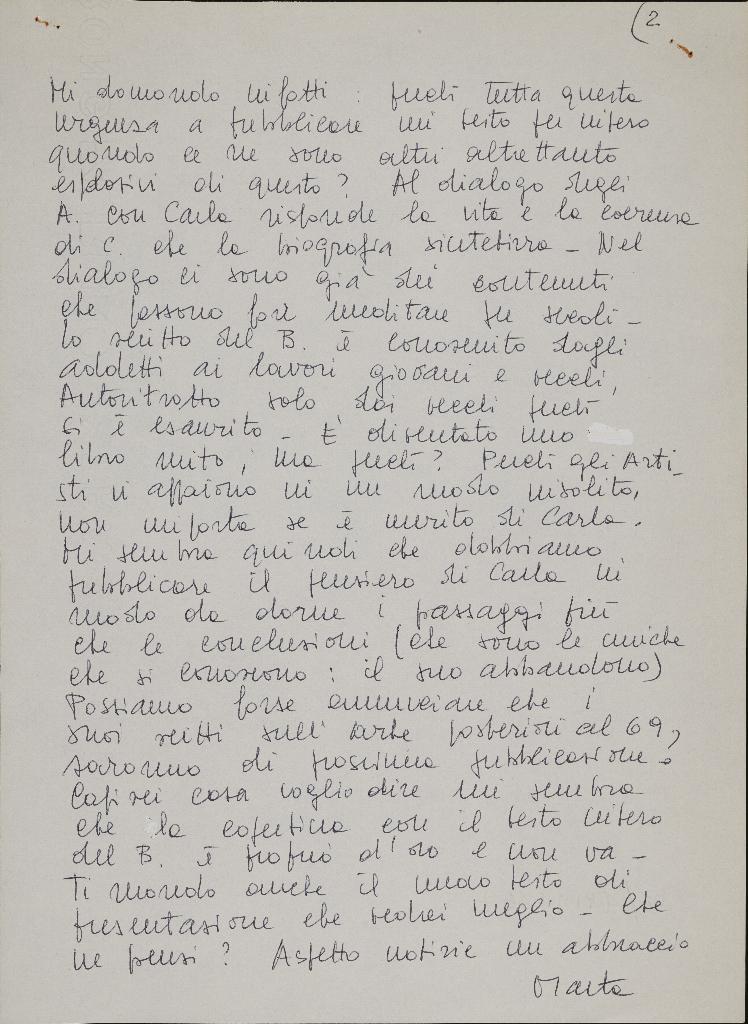 (2
Mi domando infatti : perché tutta questa
urgenza a pubblicare un testo per intero
quando ce ne sono altri altrettanto
esplosivi di questo? Al dialogo degli
A. con Carla risponde la vita e la coerenza
di C. che la biografia sintetizza – Nel
dialogo ci sono già dei contenuti
che possono far meditare per secoli –
Lo scritto del B. è conosciuto dagli
addetti ai lavori giovani e vecchi,
Autoritratto solo dai vecchi perché
si è esaurito – E' diventato uno
libro mito, ma perché? Perché gli Arti_
sti vi appaiono in un modo insolito,
non importa se è merito di Carla.
Mi sembra quindi che dobbiamo
pubblicare il pensiero di Carla in
modo da darne i passaggi più
che le conclusioni (che sono le uniche
che si conoscono : il suo abbandono)
Possiamo forse annunciare che i
suoi scritti sull'arte posteriori al 69,
saranno di prossima pubblicazione.
Capisci cosa voglio dire mi sembra
che la copertina con il testo intero
del B. è proprio d'oro e non va –
Ti mando anche il nuovo testo di
presentazione che vedrei meglio – Che
ne pensi ? Aspetto notizie un abbraccio
Marta